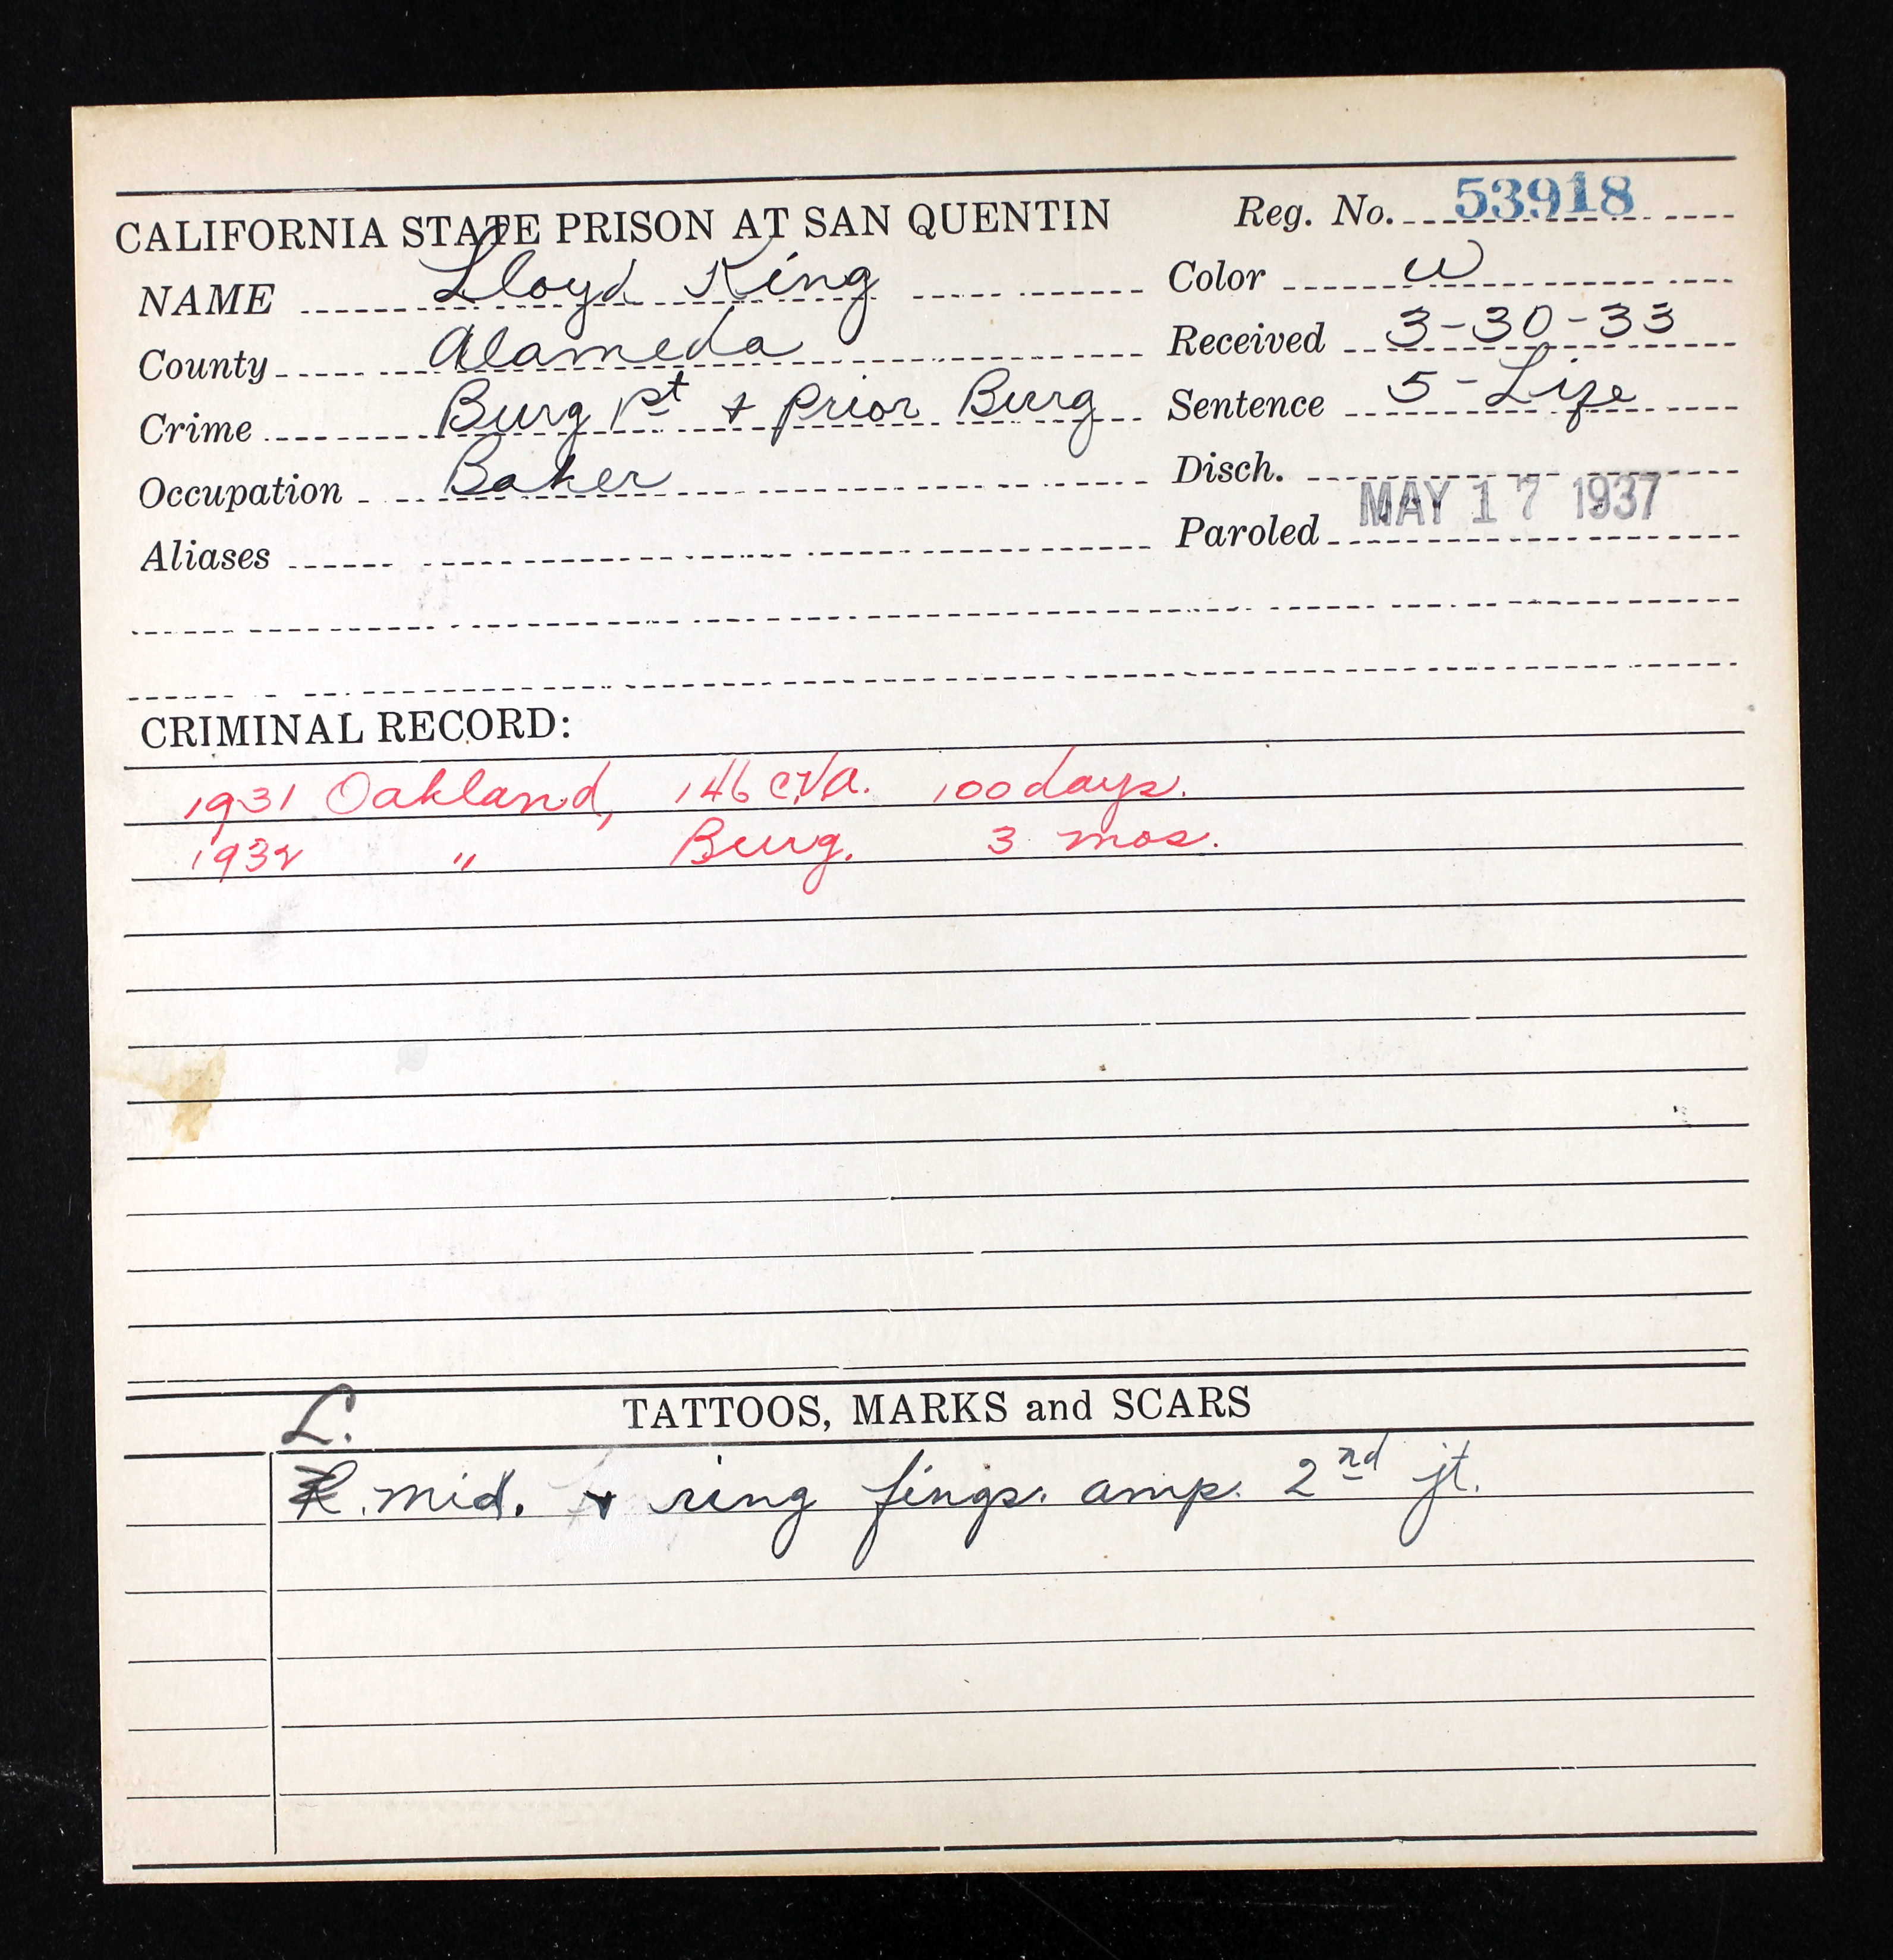 CALIFORNIA STATE PRISON AT SAN QUENTIN Reg. No. 53918
NAME Lloyd King Color W
County Alameda Received 3-30-33
Crime Burg 1st & prior Burg Sentence 5-Life
Occupation Baker Disch.
Aliases Paroled MAY 17 1937
CRIMINAL RECORD:
1931 Oakland, 146 CVA. 100 days.
1932 " Burg. 3 mos.
TATTOOS, MARKS and SCARS
L.
R. mid. & ring fings. amp. 2nd jt.